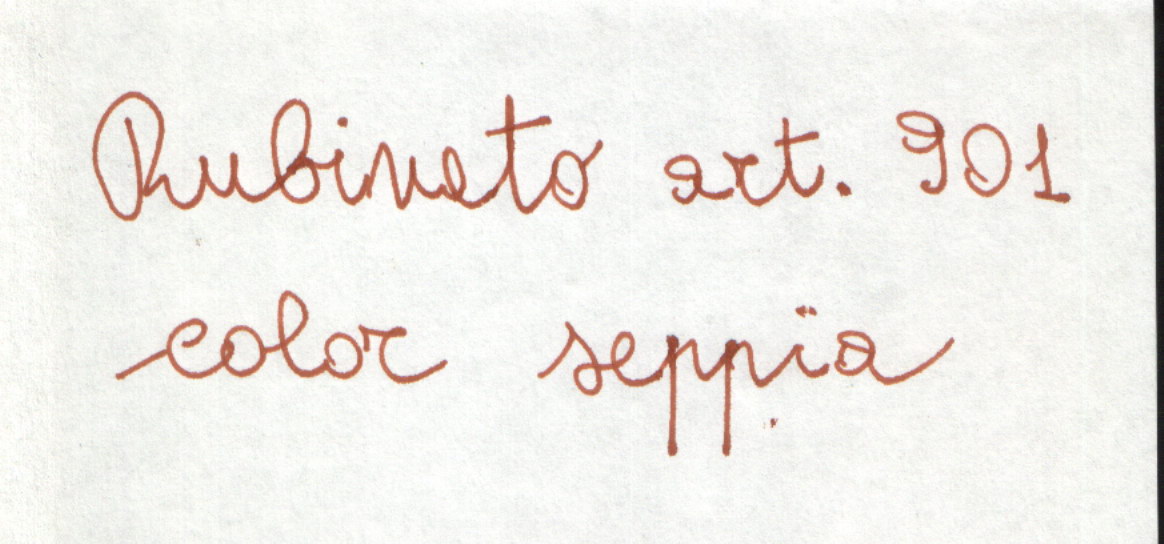 Rubinato art. 901
color seppia